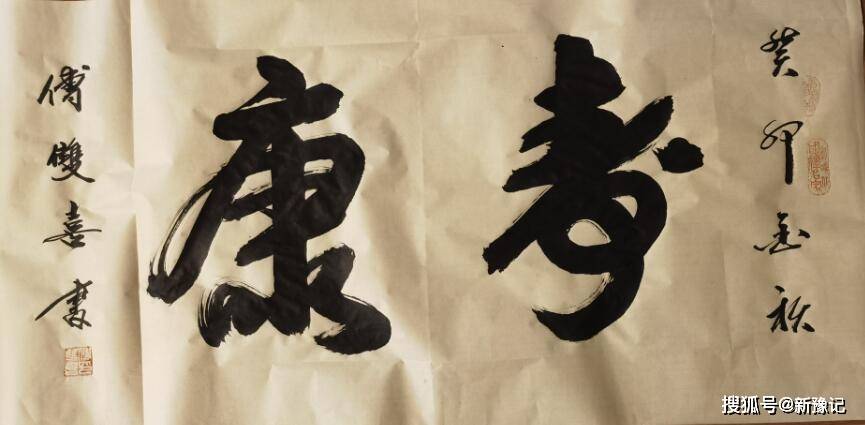 癸卯金秋
寿康
傅雙喜書
搜狐号@新豫记